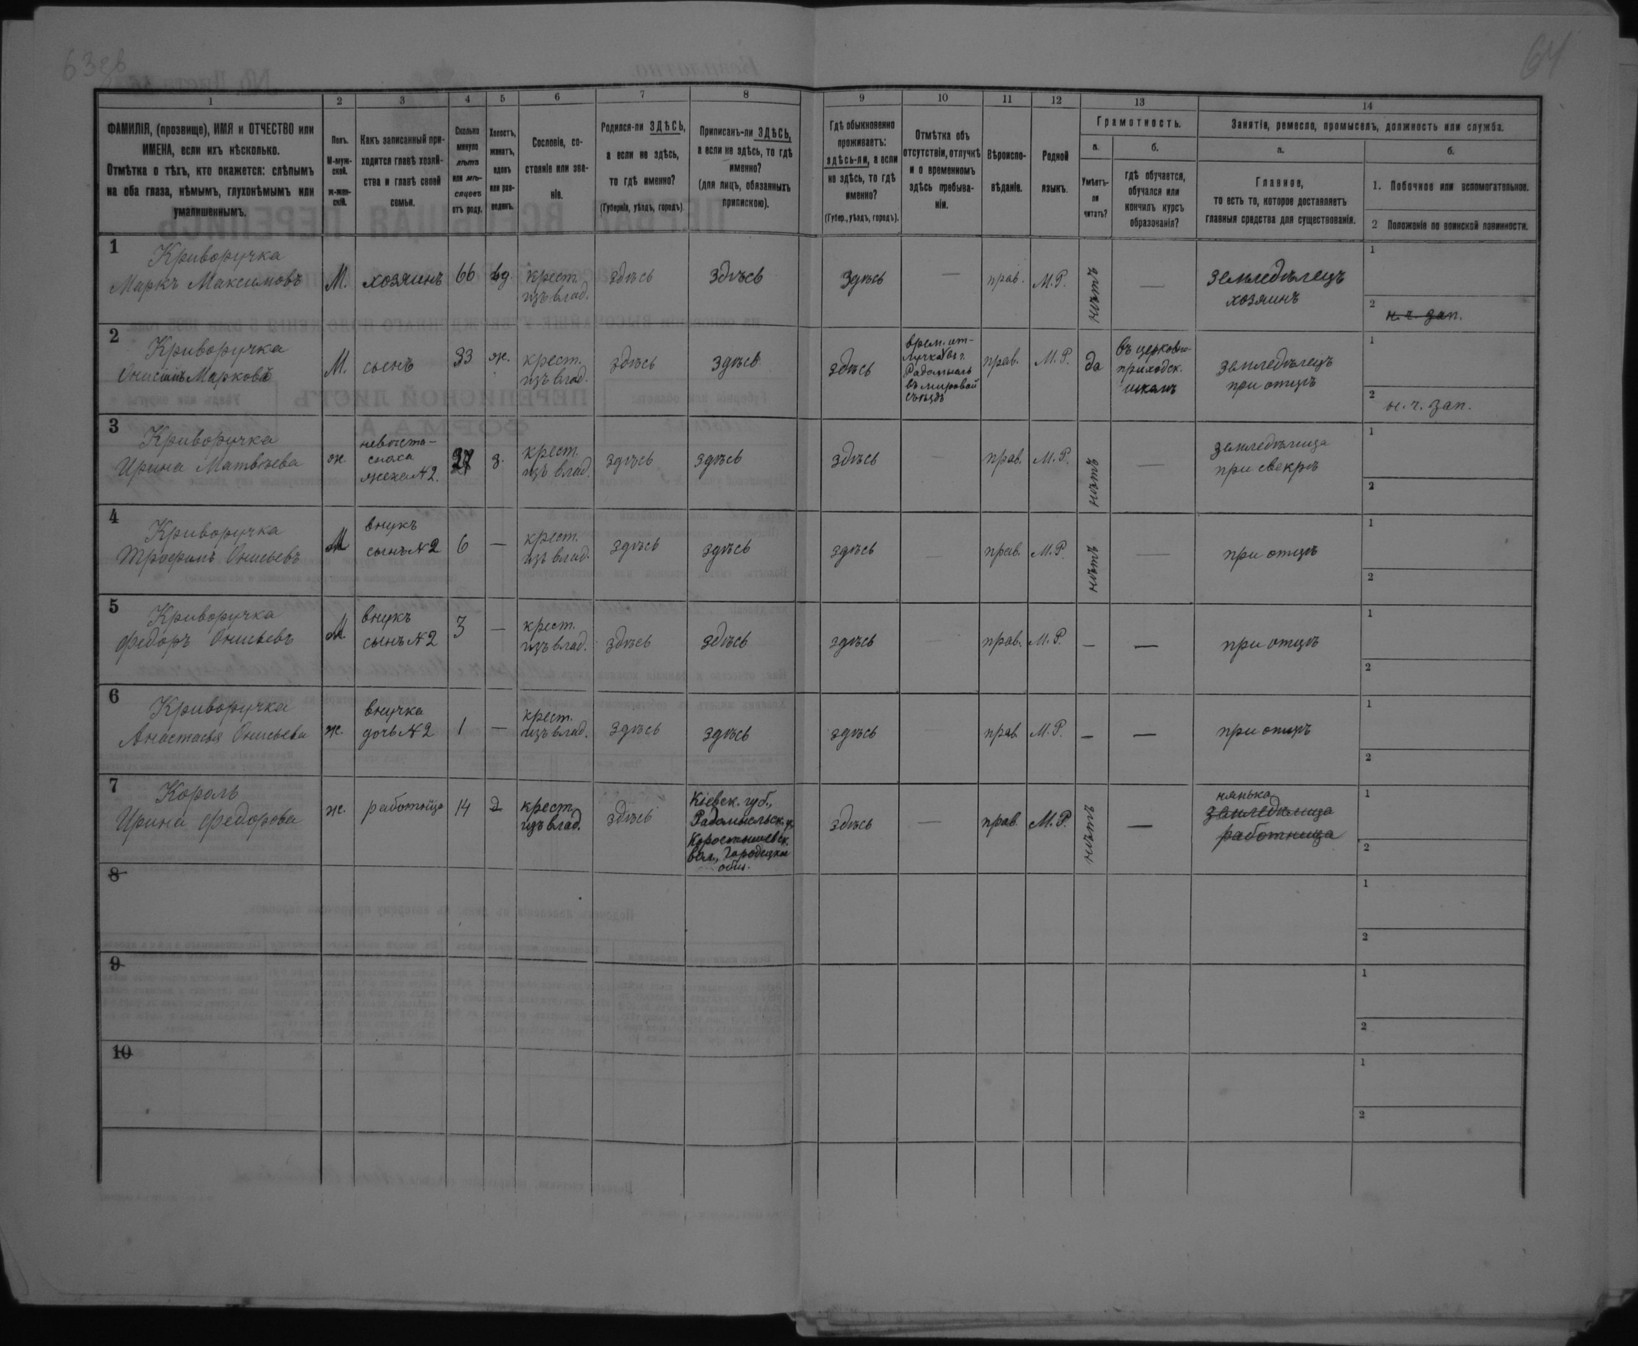 63 зв
64
1
2
3
4
5
6
7
8
9
10
11
12
13
14
ФАМИЛІЯ, (прозвище), ИМЯ и ОТЧЕСТВО или
ИМЕНА, если ихъ нѣсколько.
Отмѣтка о тѣхъ, кто окажется: слѣпымъ
на оба глаза, нѣмымъ, глухонѣмымъ или
умалишеннымъ.
Полъ.
М-муж-
ской.
ж-жен-
скій.
Какъ записанный при-
ходится главѣ хозяй-
ства и главѣ своей
семьи.
Сколько
минуло
лѣтъ
или мѣ-
сяцевъ
отъ роду.
Холостъ,
женатъ,
вдовъ
или раз-
веденъ.
Сословіе, со-
стояніе или зва-
ніе.
Родился-ли ЗДѢСЬ,
а если не здѣсь,
то гдѣ именно?
(Губернія, уѣздъ, городъ).
Приписанъ-ли ЗДѢСЬ,
а если не здѣсь, то гдѣ
именно?
(для лицъ, обязанныхъ
припискою).
Гдѣ обыкновенно
проживаетъ:
здѣсь-ли, а если
не здѣсь, то гдѣ
именно?
(Губер., уѣздъ, городъ).
Отмѣтка объ
отсутствіи, отлучкѣ
и о временномъ
здѣсь пребыва-
ніи.
Вѣроиспо-
вѣданіе.
Родной
языкъ.
Грамотность.
а.
Умѣетъ-
ли
читать?
б.
гдѣ обучается,
обучался или
кончилъ курсъ
образованія?
Занятіе, ремесло, промыселъ, должность или служба.
а.
Главное,
то есть то, которое доставляетъ
главныя средства для существованія.
б.
1. Побочное или вспомогательное.
2 Положеніе по воинской повинности.
1
Криворучка
Маркъ Максимовъ
М.
хозяинъ
66
вд.
крест.
изъ влад.
здѣсь
здѣсь
здѣсь
—
прав.
М.Р.
нѣтъ
—
земледѣлецъ
хозяинъ
1
2
н. ч. зап.
2
Криворучка
Онисимъ Марковъ
М.
сынъ
33
ж.
крест.
изъ влад.
здѣсь
здѣсь
здѣсь
врем. от-
лучка въ г.
Радомысль
въ мировой
съѣздъ
прав.
М.Р.
да
въ церковно
приходск.
школѣ
земледѣлецъ
при отцѣ
1
2
н. ч. зап.
3
Криворучка
Ирина Матвѣева
ж.
невѣстка
жена №2.
27
з.
крест.
изъ влад.
здѣсь
здѣсь
здѣсь
прав.
М.Р.
нѣтъ
—
земледѣлица
при свекрѣ
1
2
4
Криворучка
Трофимъ Онисьевъ
М
внукъ
сынъ №2
6
—
крест.
изъ влад.
здѣсь
здѣсь
здѣсь
прав.
М.Р.
нѣтъ
—
при отцѣ
1
2
5
Криворучка
Федоръ Онисьевъ
М
внукъ
сынъ №2
3
—
крест.
изъ влад.
здѣсь
здѣсь
здѣсь
прав.
М.Р.
—
—
при отцѣ
1
2
6
Криворучка
Анастасья Онисьева
ж.
внучка
дочь №2
1
—
крест.
изъ влад.
здѣсь
здѣсь
здѣсь
прав.
М.Р.
—
—
при отцѣ
1
2
7
Король
Ирина Федорова
ж.
работница
14
д
крест.
изъ влад.
здѣсь
Кіевск. губ.,
Радомысльск. у.
Коростышевск.
вол., Городецкое
общ.
здѣсь
—
прав.
М.Р.
нѣтъ
—
нянька
земледѣлица
работница
1
2
8
1
2
9
1
2
10
1
2